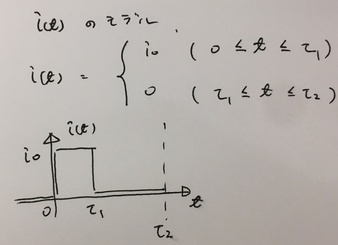 i(t) のモデル.
i(t) = { i₀ ( 0 ≤ t ≤ τ₁ )
0 ( τ₁ ≤ t ≤ τ₂ )
i(t)
i₀
0 τ₁ t
τ₂